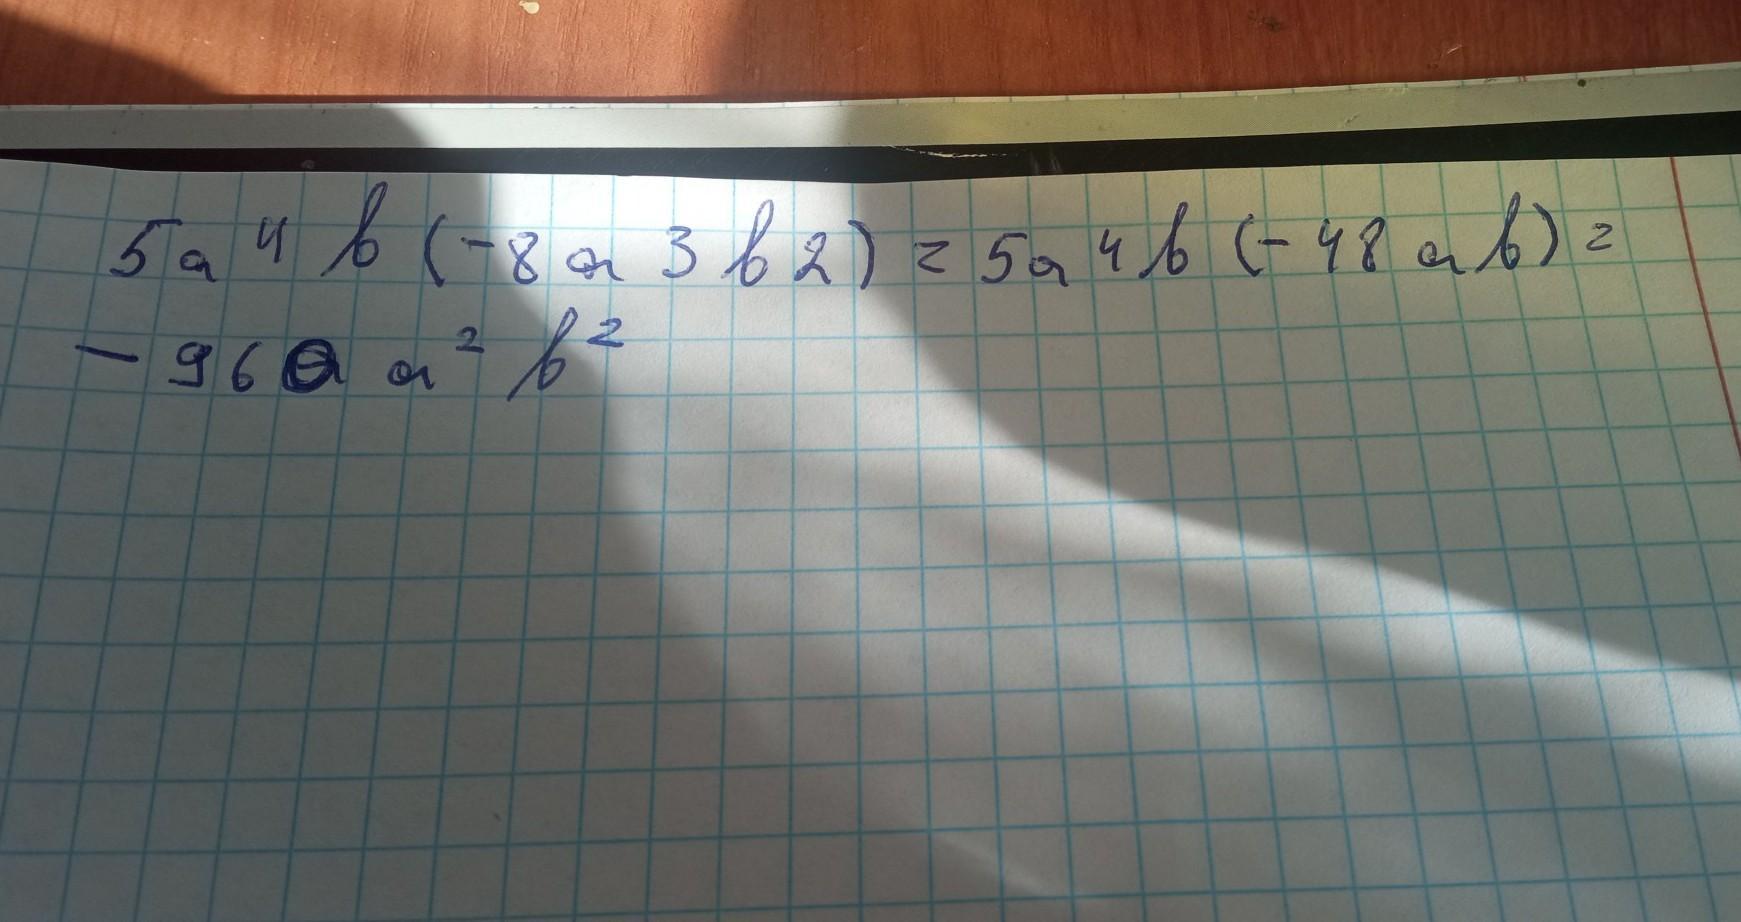 5a 4 b (-8a 3 b 2) = 5a 4 b (-48 a b) =
- 960 a² b²